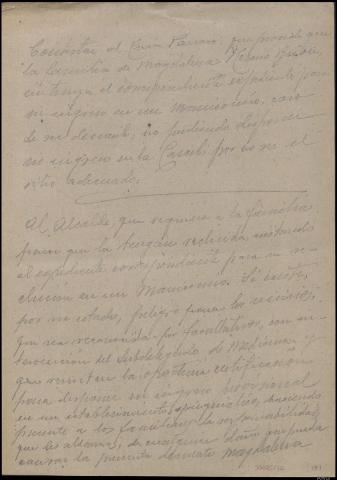 Contestar al Cura Párroco, que procede que
la familia de Magdalena
incluya el correspondiente expediente para
su ingreso en un Manicomio, caso
de ser demente, no pudiendo disponer
su ingreso en la Casa por no ser el
sitio adecuado.
Al Alcalde que requiera a la familia
para que la tengan recluida, instando
el expediente correspondiente para su re-
clusión en un Manicomio. Si existe,
por su estado, peligro para los vecinos,
que sea reconocida por facultativos, con in-
tervención del Subdelegado de Medicina y
que remitan la oportuna certificación
para disponer su ingreso provisional
en un establecimiento psiquiátrico, haciendo
presente a los familiares la responsabilidad
que les alcanza, de cualquier daño que pueda
causar la presunta demente Magdalena